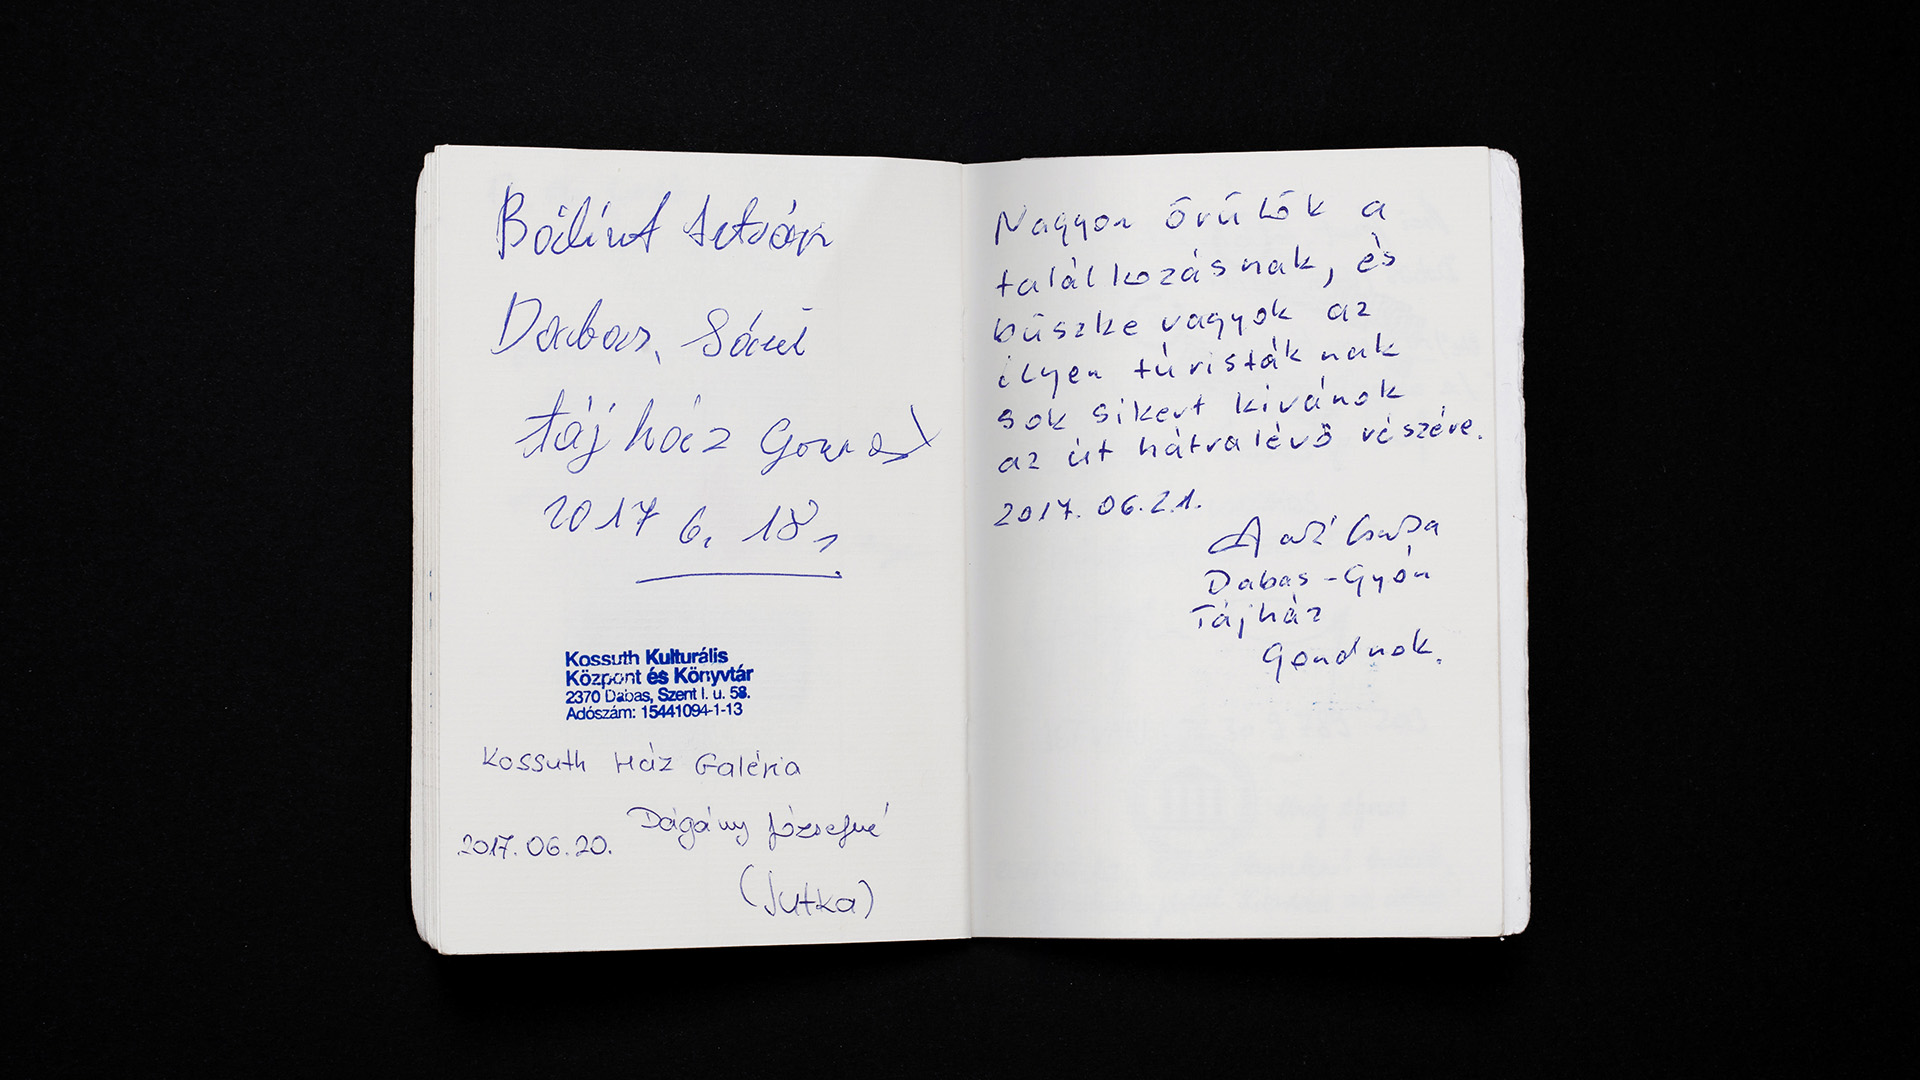 Bálint István
Dabas, Sári
tájház Gond
2017 6. 18.
Kossuth Kulturális
Központ és Könyvtár
2370 Dabas, Szent I. u. 58.
Adószám: 15441094-1-13
Kossuth Ház Galéria
Dágány Józsefné
2017.06.20.
(Jutka)
Nagyon örülök a
találkozásnak, és
büszke vagyok az
ilyen túristáknak
sok sikert kivánok
az út hátralévő részére.
2017. 06.21.
Csaba
Dabas-Gyón
Tájház
Gondnok.